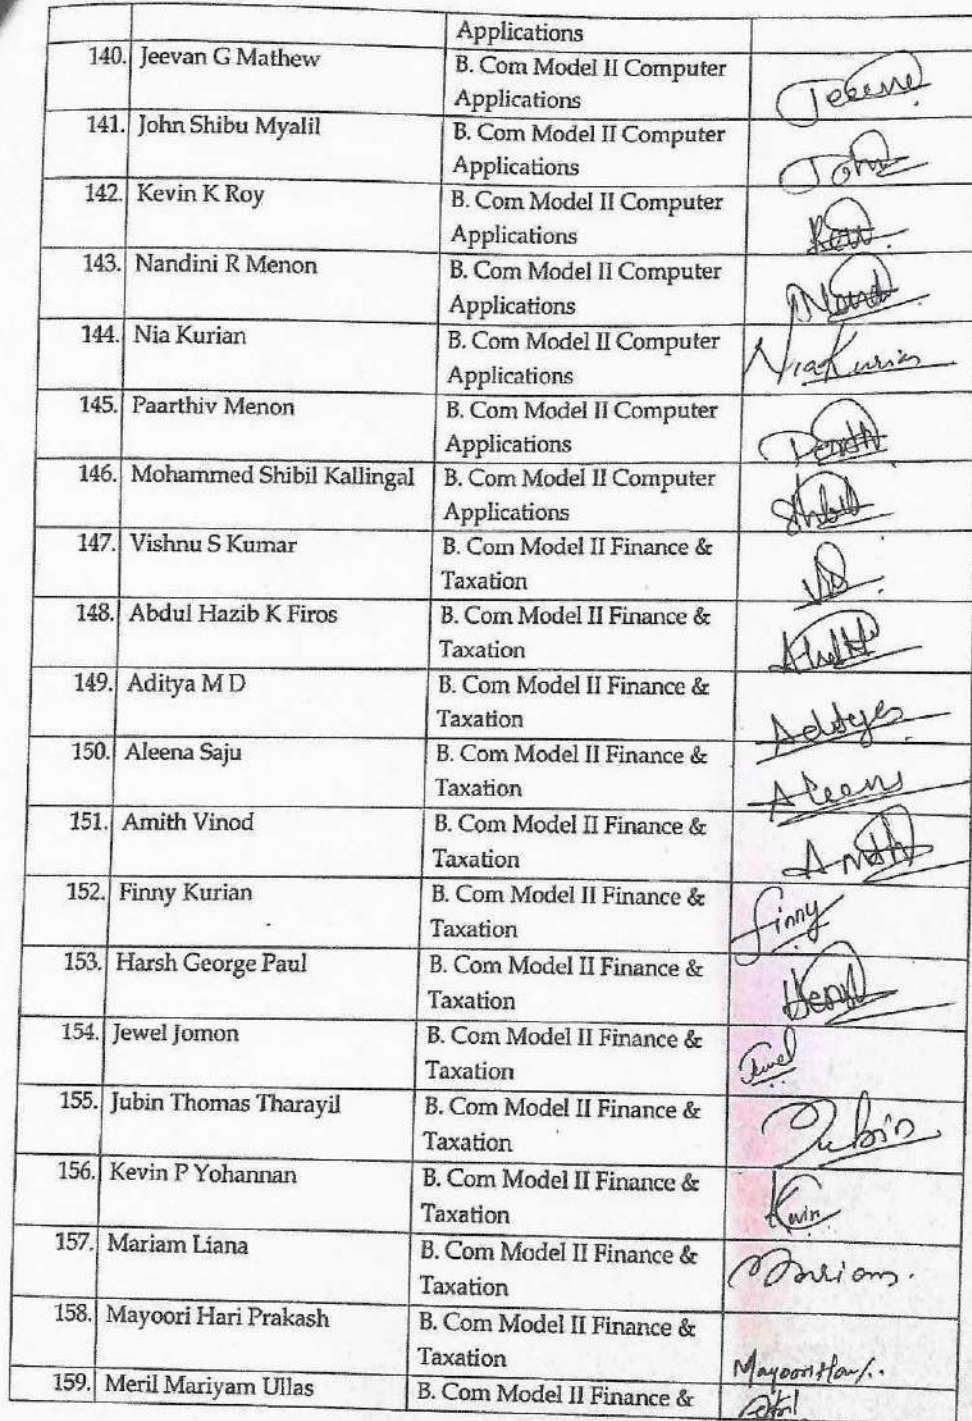 Applications
140. Jeevan G Mathew B. Com Model II Computer
Applications
Jeevan
141. John Shibu Myalil B. Com Model II Computer
Applications
John
142. Kevin K Roy B. Com Model II Computer
Applications
143. Nandini R Menon B. Com Model II Computer
Applications
144. Nia Kurian B. Com Model II Computer
Applications
Nia Kurian
145. Paarthiv Menon B. Com Model II Computer
Applications
146. Mohammed Shibil Kallingal B. Com Model II Computer
Applications
147. Vishnu S Kumar B. Com Model II Finance &
Taxation
148. Abdul Hazib K Firos B. Com Model II Finance &
Taxation
149. Aditya M D B. Com Model II Finance &
Taxation
150. Aleena Saju B. Com Model II Finance &
Taxation
151. Amith Vinod B. Com Model II Finance &
Taxation
Amith
152. Finny Kurian B. Com Model II Finance &
Taxation
Finny
153. Harsh George Paul B. Com Model II Finance &
Taxation
154. Jewel Jomon B. Com Model II Finance &
Taxation
Jewel
155. Jubin Thomas Tharayil B. Com Model II Finance &
Taxation
Jubin
156. Kevin P Yohannan B. Com Model II Finance &
Taxation
Kevin
157. Mariam Liana B. Com Model II Finance &
Taxation
Mariam.
158. Mayoori Hari Prakash B. Com Model II Finance &
Taxation
159. Meril Mariyam Ullas B. Com Model II Finance &